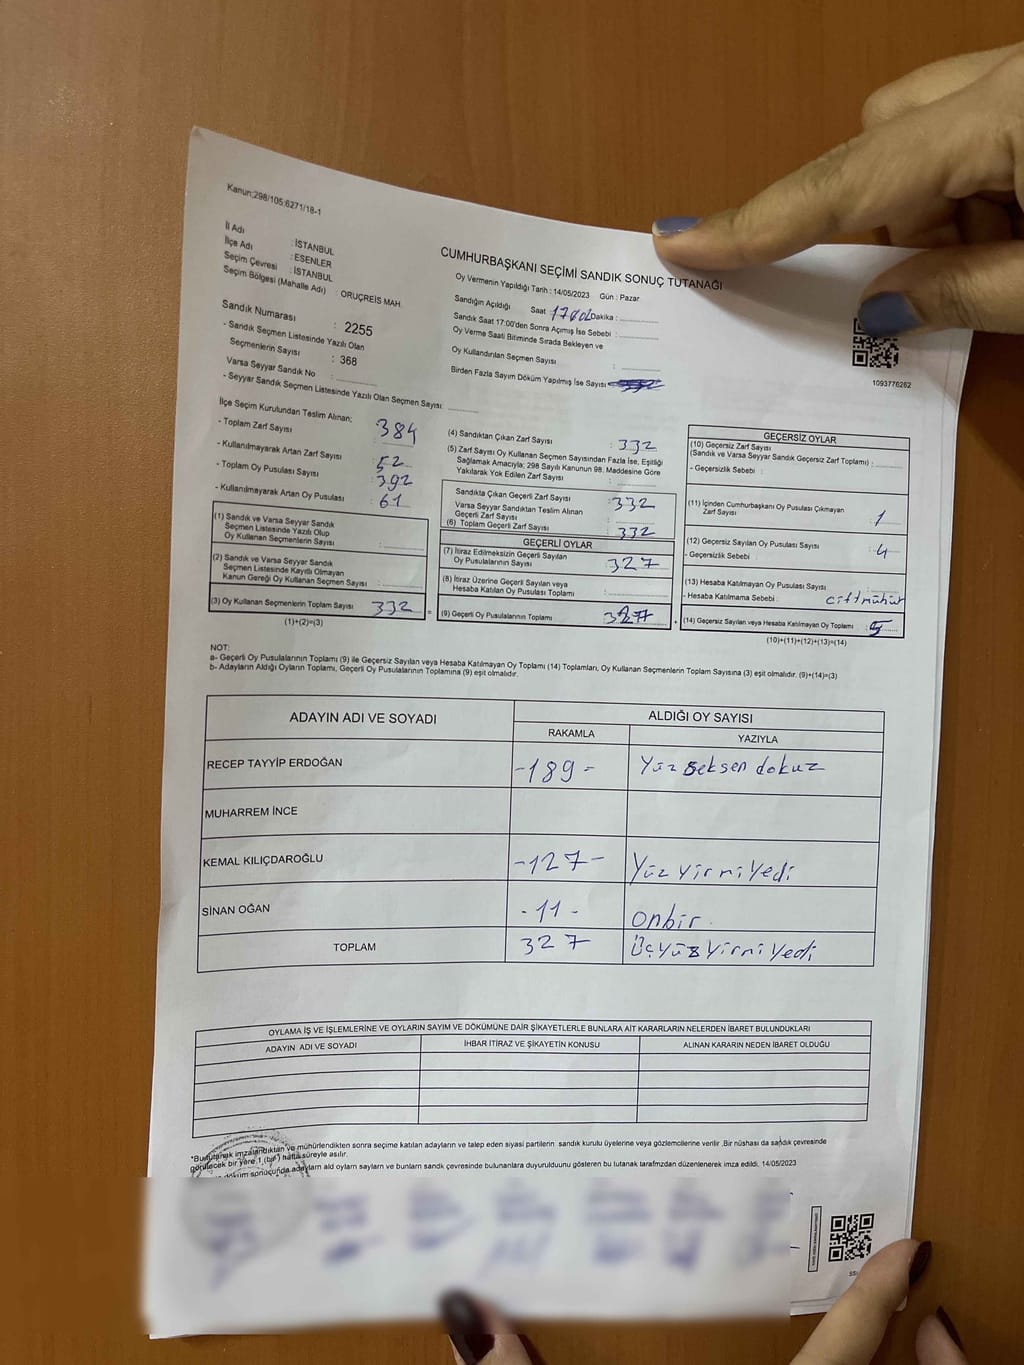 Kanun;298/105;6271/18-1
İl Adı : İSTANBUL
İlçe Adı : ESENLER
Seçim Çevresi : İSTANBUL
Seçim Bölgesi (Mahalle Adı) : ORUÇREİS MAH.
Sandık Numarası : 2255
- Sandık Seçmen Listesinde Yazılı Olan
Seçmenlerin Sayısı : 368
Varsa Seyyar Sandık No :
- Seyyar Sandık Seçmen Listesinde Yazılı Olan Seçmen Sayısı:
CUMHURBAŞKANI SEÇİMİ SANDIK SONUÇ TUTANAĞI
Oy Vermenin Yapıldığı Tarih : 14/05/2023 Gün : Pazar
Sandığın Açıldığı Saat 17:00 Dakika :
Sandık Saat 17:00'den Sonra Açımış İse Sebebi :
Oy Verme Saati Bitiminde Sırada Bekleyen ve
Oy Kullandırılan Seçmen Sayısı :
Birden Fazla Sayım Döküm Yapılmış İse Sayısı
1093776262
İlçe Seçim Kurulundan Teslim Alınan;
- Toplam Zarf Sayısı : 384
- Kullanılmayarak Artan Zarf Sayısı : 52
- Toplam Oy Pusulası Sayısı : 392
- Kullanılmayarak Artan Oy Pusulası : 61
(1) Sandık ve Varsa Seyyar Sandık
Seçmen Listesinde Yazılı Olup
Oy Kullanan Seçmenlerin Sayısı :
(2) Sandık ve Varsa Seyyar Sandık
Seçmen Listesinde Kayıtlı Olmayan
Kanun Gereği Oy Kullanan Seçmen Sayısı :
(3) Oy Kullanan Seçmenlerin Toplam Sayısı 332 =
(1)+(2)=(3)
(4) Sandıktan Çıkan Zarf Sayısı : 332
(5) Zarf Sayısı Oy Kullanan Seçmen Sayısından Fazla İse, Eşitliği
Sağlamak Amacıyla; 298 Sayılı Kanunun 98. Maddesine Göre
Yakılarak Yok Edilen Zarf Sayısı :
Sandıkta Çıkan Geçerli Zarf Sayısı : 332
Varsa Seyyar Sandıktan Teslim Alınan
Geçerli Zarf Sayısı :
(6) Toplam Geçerli Zarf Sayısı : 332
GEÇERLİ OYLAR
(7) İtiraz Edilmeksizin Geçerli Sayılan
Oy Pusulalarının Sayısı : 327
(8) İtiraz Üzerine Geçerli Sayılan veya
Hesaba Katılan Oy Pusulası Toplamı :
(9) Geçerli Oy Pusulalarının Toplamı : 327 +
GEÇERSİZ OYLAR
(10) Geçersiz Zarf Sayısı
(Sandık ve Varsa Seyyar Sandık Geçersiz Zarf Toplamı) :
- Geçersizlik Sebebi :
(11) İçinden Cumhurbaşkanı Oy Pusulası Çıkmayan
Zarf Sayısı : 1
(12) Geçersiz Sayılan Oy Pusulası Sayısı : 4
- Geçersizlik Sebebi :
(13) Hesaba Katılmayan Oy Pusulası Sayısı :
- Hesaba Katılmama Sebebi : çift mühür
(14) Geçersiz Sayılan veya Hesaba Katılmayan Oy Toplamı : 5
(10)+(11)+(12)+(13)=(14)
NOT:
a- Geçerli Oy Pusulalarının Toplamı (9) ile Geçersiz Sayılan veya Hesaba Katılmayan Oy Toplamı (14) Toplamları, Oy Kullanan Seçmenlerin Toplam Sayısına (3) eşit olmalıdır. (9)+(14)=(3)
b- Adayların Aldığı Oyların Toplamı, Geçerli Oy Pusulalarının Toplamına (9) eşit olmalıdır.
ADAYIN ADI VE SOYADI ALDIĞI OY SAYISI
RAKAMLA YAZIYLA
RECEP TAYYİP ERDOĞAN -189- Yüz seksen dokuz
MUHARREM İNCE
KEMAL KILIÇDAROĞLU -127- Yüz Yirmi Yedi
SİNAN OĞAN -11- onbir.
TOPLAM 327 Üçyüz Yirmi Yedi
OYLAMA İŞ VE İŞLEMLERİNE VE OYLARIN SAYIM VE DÖKÜMÜNE DAİR ŞİKAYETLERLE BUNLARA AİT KARARLARIN NELERDEN İBARET BULUNDUKLARI
ADAYIN ADI VE SOYADI İHBAR İTİRAZ VE ŞİKAYETİN KONUSU ALINAN KARARIN NEDEN İBARET OLDUĞU
*Bu tutanak imzalandıktan ve mühürlendikten sonra seçime katılan adayların ve talep eden siyasi partilerin sandık kurulu üyelerine veya gözlemcilerine verilir .Bir nüshası da sandık çevresinde
görülecek bir yere 1 (bir) hafta süreyle asılır.
döküm sonucunda adayların ald oyların sayları ve bunların sandık çevresinde bulunanlara duyurulduunu gösteren bu tutanak tarafmzdan düzenlenerek imza edildi. 14/05/2023